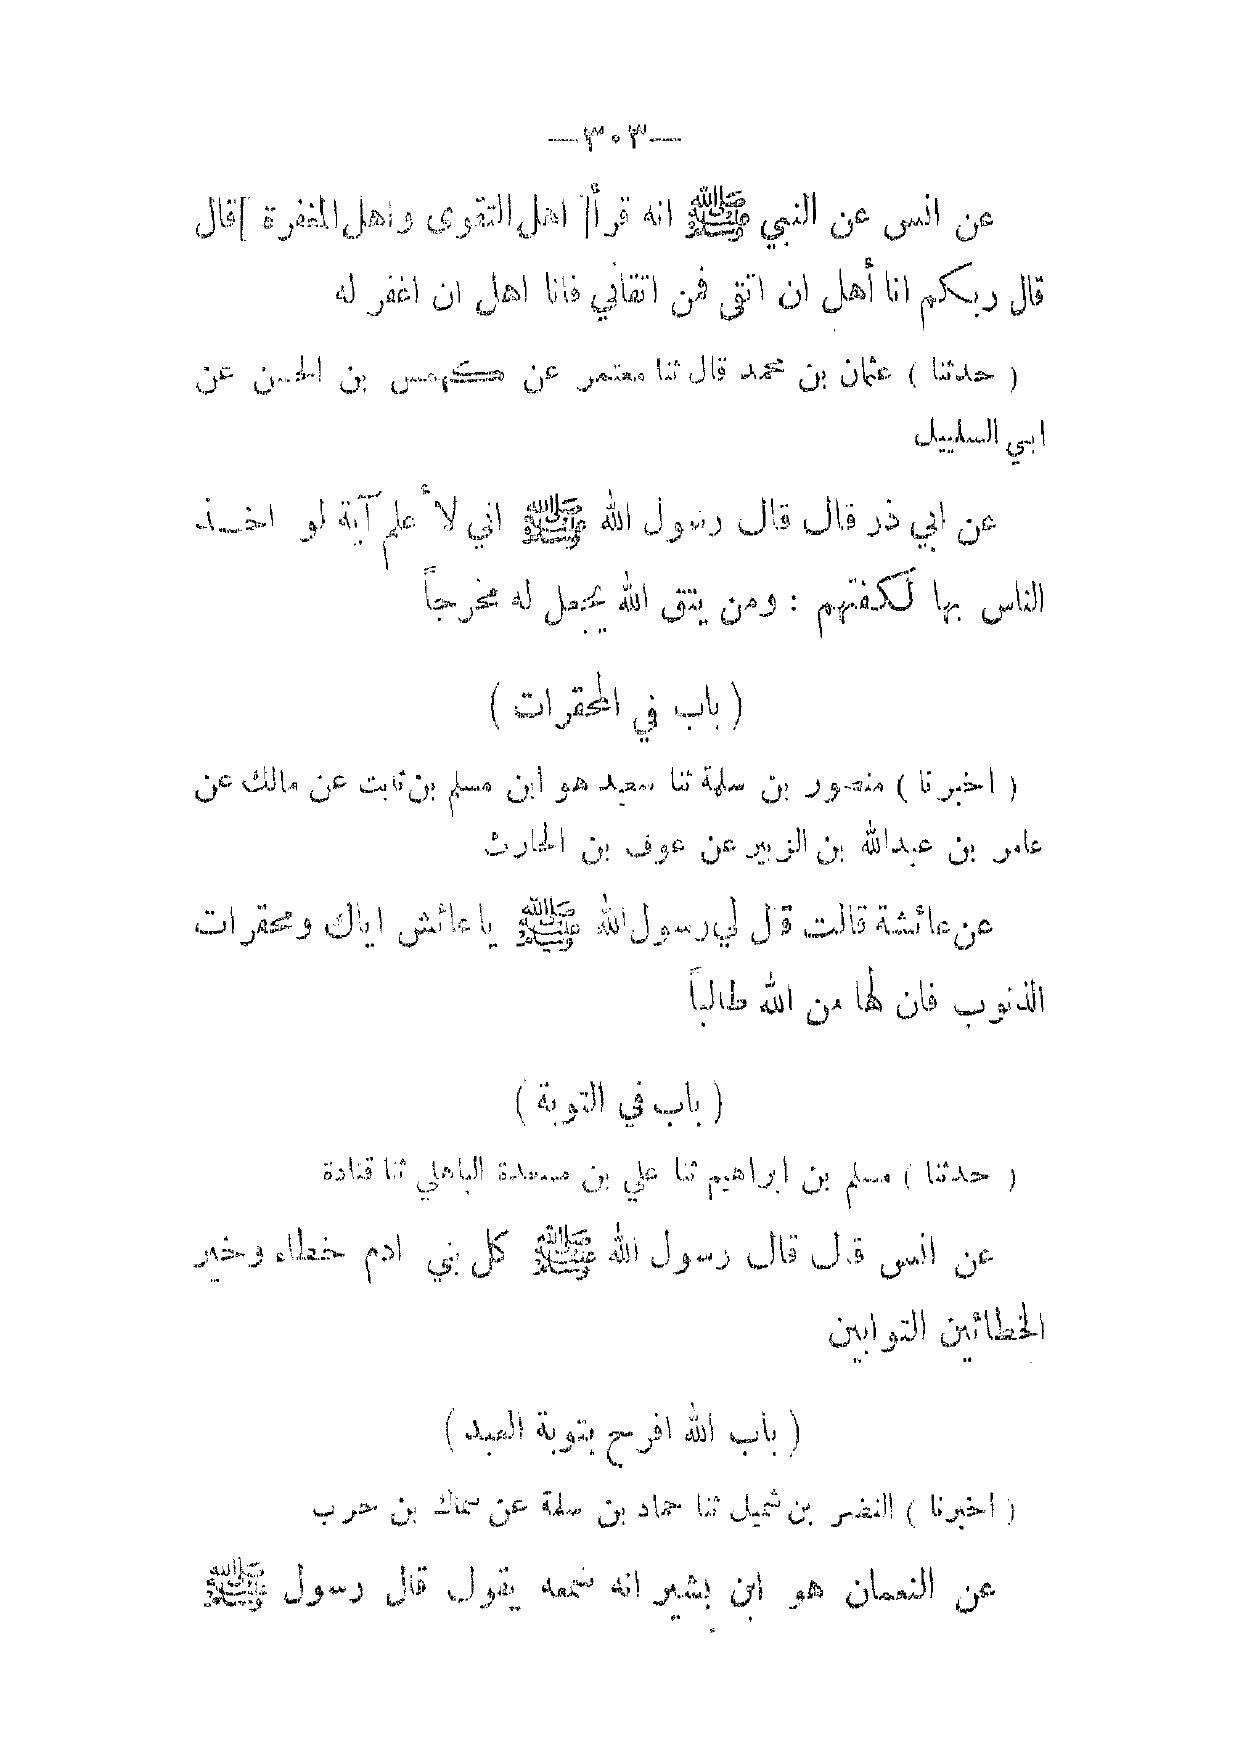 —٣٠٣—
عن انس عن النبي ﷺ انه قرأ[ اهل التقوى واهل المغفرة ]قال
قال ربكم انا أهل ان اتقى فمن اتقاني فانا اهل ان اغفر له
( حدثنا ) عثمان بن محمد قال ثنا معتمر عن كهمس بن الحسن عن
ابي السليل
عن ابي ذر قال قال رسول الله ﷺ اني لأعلم آية لو اخذ
الناس بها لكفتهم : ومن يتق الله يجعل له مخرجاً
( باب في المحقرات )
( اخبرنا ) منصور بن سلمة ثنا سعيد هو ابن مسلم بن ثابت عن مالك عن
عامر بن عبدالله بن الزبير عن عوف بن الحارث
عن عائشة قالت قال لي رسول الله ﷺ يا عائش اياك ومحقرات
الذنوب فان لها من الله طالباً
( باب في التوبة )
( حدثنا ) مسلم بن ابراهيم ثنا علي بن مسعدة الباهلي ثنا قتادة
عن انس قال قال رسول الله ﷺ كل بني ادم خطاء وخير
الخطائين التوابين
( باب الله افرح بتوبة العبد )
( اخبرنا ) النضر بن شميل ثنا حماد بن سلمة عن سماك بن حرب
عن النعمان هو ابن بشير انه سمعه يقول قال رسول ﷺ